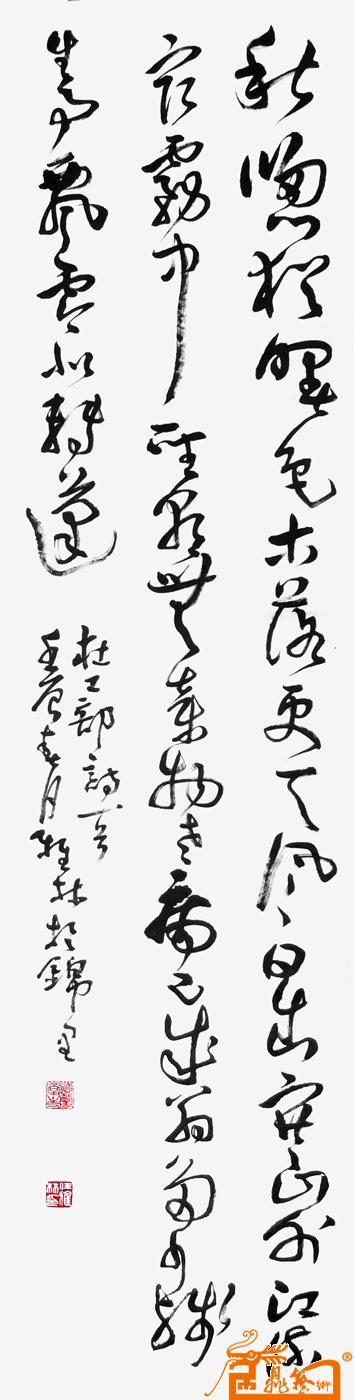 秋窗猶曙色木落更天風日出寒山外江流
宿霧中聖朝無棄物老病已成翁多少殘
生事飄零似轉蓬
杜工部詩一首
壬辰春月林於錦里